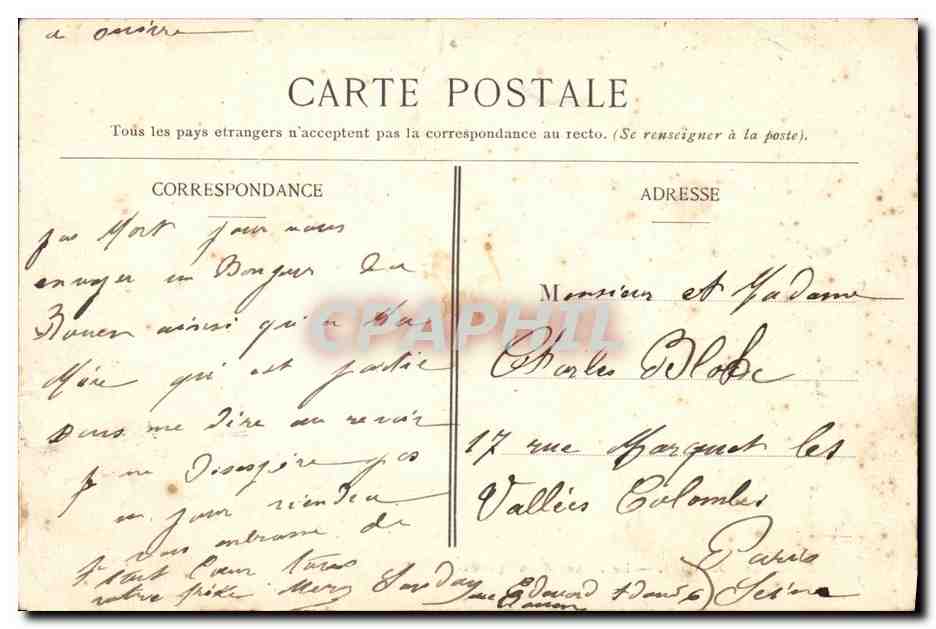 CARTE POSTALE
Tous les pays etrangers n'acceptent pas la correspondance au recto. (Se renseigner à la poste).
CORRESPONDANCE
pas Mort pour vous
envoyer un Bonjour de
Rouen ainsi qu'a Ma
Mère qui est partie
sans me dire au revoir
je ne Désespère pas
un jour viendra
Je vous embrasse de
tout Coeur
votre
ADRESSE
Monsieur et Madame
Charles Bloc
17 rue Marquet les
Vallées Colombes
Paris
Seine
CPAPHIL